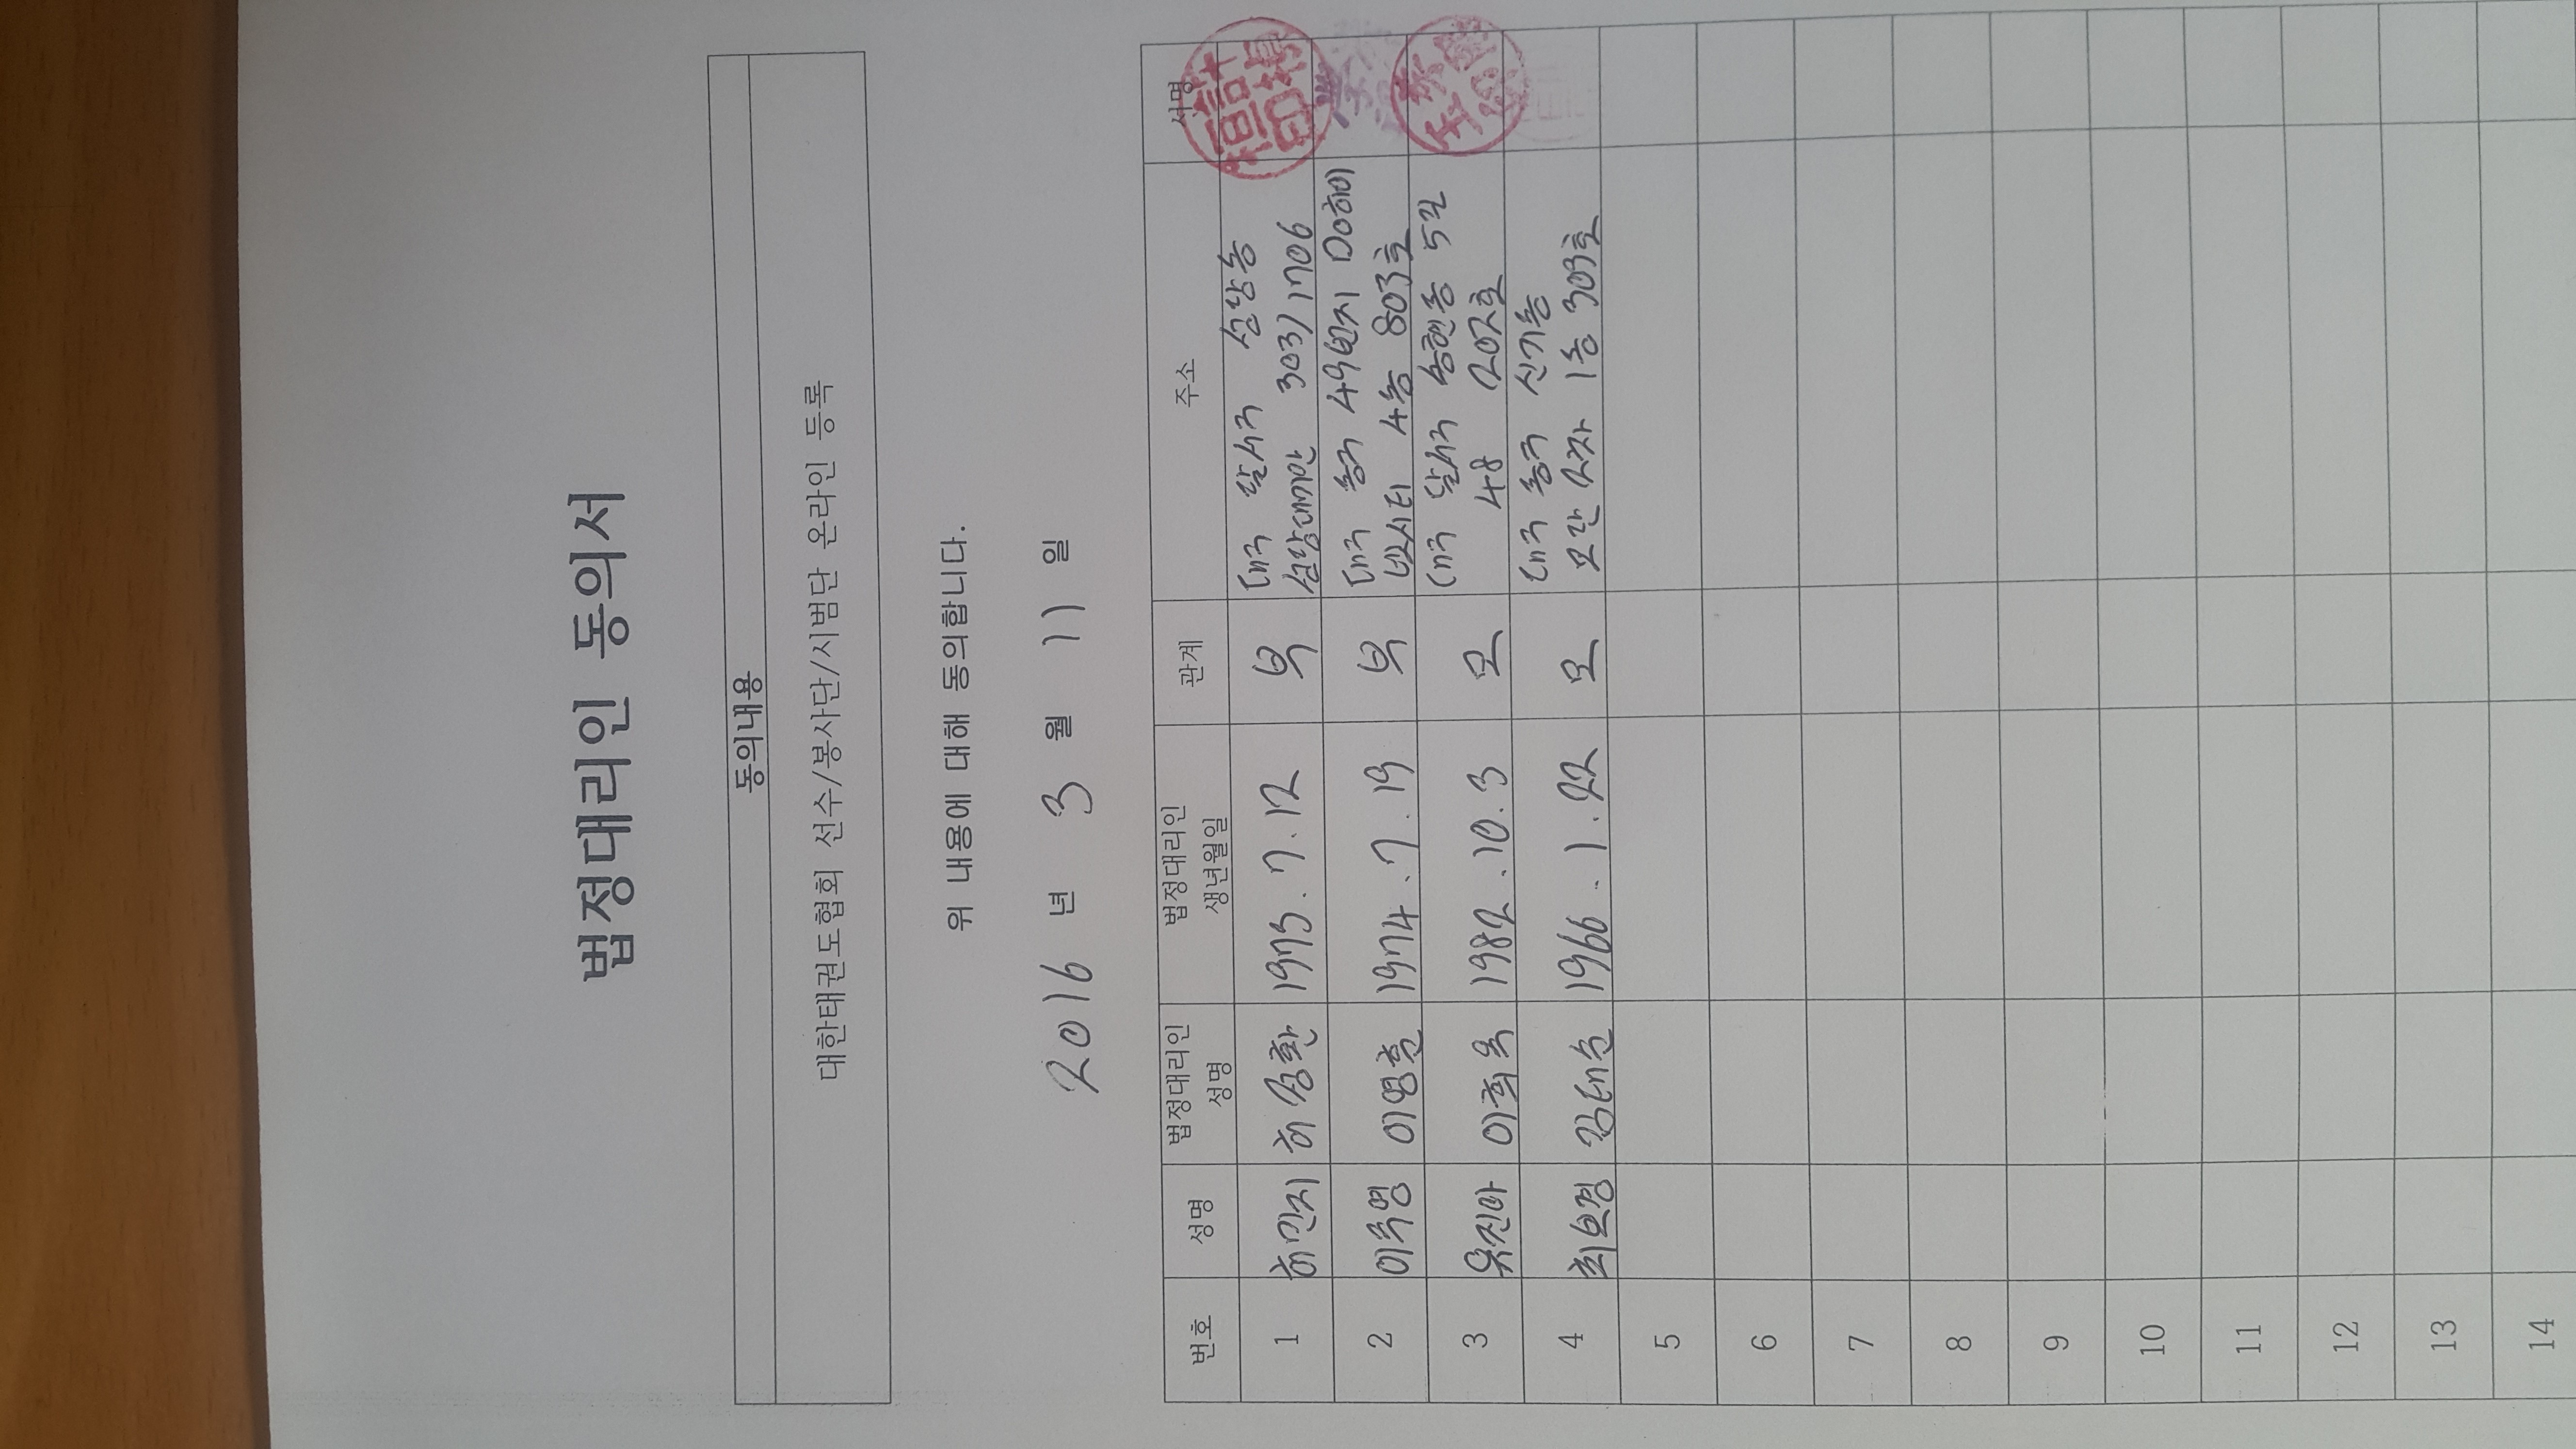 법정대리인 동의서
동의내용
대한태권도협회 선수/봉사단/시범단 온라인 등록
위 내용에 대해 동의합니다.
2016 년 3 월 11 일
번호 성명 법정대리인 성명 법정대리인 생년월일 관계 주소 서명
1 허민지 허성환 1973.7.12 부 대구 달서구 상당동
303/1706
2 이주영 이영훈 1974.7.19 부 대구 동구 496번지
4동 803호
3 유진아 이희옥 1982.10.3 모 대구 달서구 송현동 5길
48 202호
4 최보경 김태순 1966.1.22 모 대구 동구 신기동
1동 303호
5
6
7
8
9
10
11
12
13
14